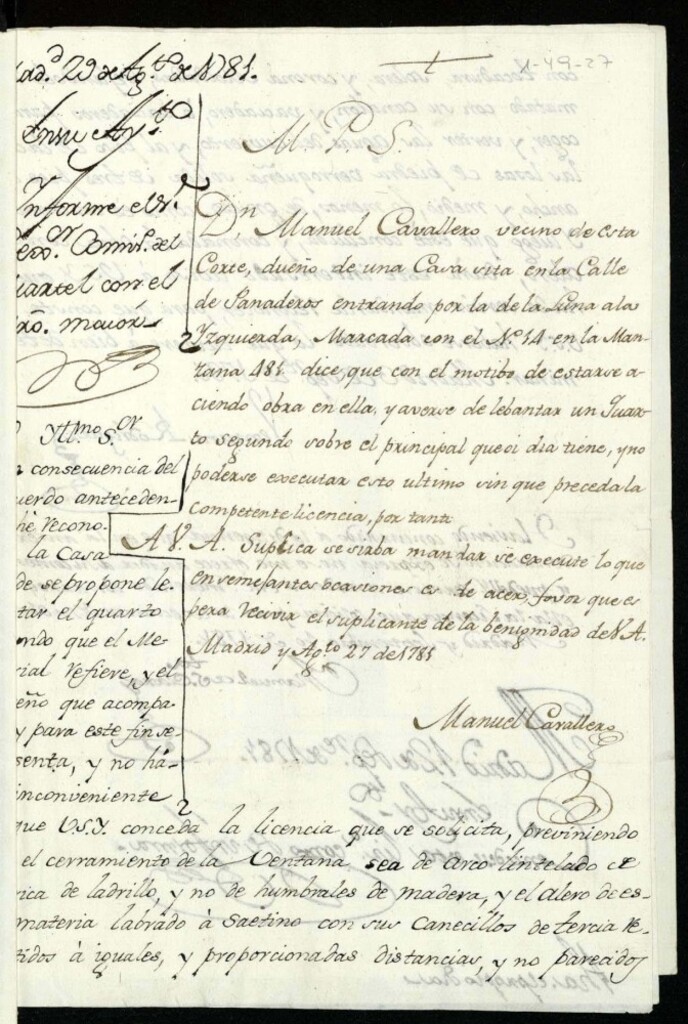 1-49-27
M. P. S.
Dn Manuel Cavallero vecino de esta
Corte, dueño de una Casa sita en la Calle
de Panaderos entrando por la de la Luna a la
Yzquierda, Marcada con el No. 14 en la Man-
zana 481. dice, que con el motibo de estarse a-
ciendo obra en ella, y averse de lebantar un Quar-
to segundo sobre el principal que oi dia tiene, y no
poderse executar esto ultimo sin que preceda la
Competente licencia, por tanto
A V. A. Suplica se sirba mandar se execute lo que
en semejantes ocasiones es de acer, fabor que es
pera recivir el suplicante de la benignidad de V A.
Madrid y Agto 27 de 1781
Manuel Cavallero
ad.d 29 de Agto de 1781.
En su Ayto
Ynforme el Sr.
Comiso. del
uartel con el
ro. maior
Yllmo Sor
n consecuencia del
uerdo anteceden-
he recono-
la Casa
de se propone le-
tar el quarto
ndo que el Me-
rial refiere, y el
eño que acompa-
y para este fin se
senta, y no há-
inconveniente
que V.S.Y. conceda la licencia que se solicita, previniendo
el cerramiento de la Ventana, sea de arco lintelado de
rica de ladrillo, y no de humbrales de madera, y el Alero de es-
materia labrado à Saetino con sus Canecillos de tercia re-
tidos à iguales, y proporcionadas distancias, y no parecidos